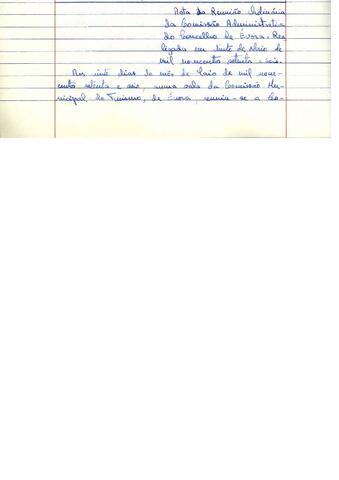 Acta da Reunião Ordinária
da Comissão Administrativa
do Concelho de Évora. Rea
em vinte de Maio de
mil novecentos setenta e seis.
Aos vinte dias do mês de Maio de mil nove-
centos setenta e seis, numa sala da Comissão Mu-
nicipal de Turismo, de Évora, reuniu-se a Co-